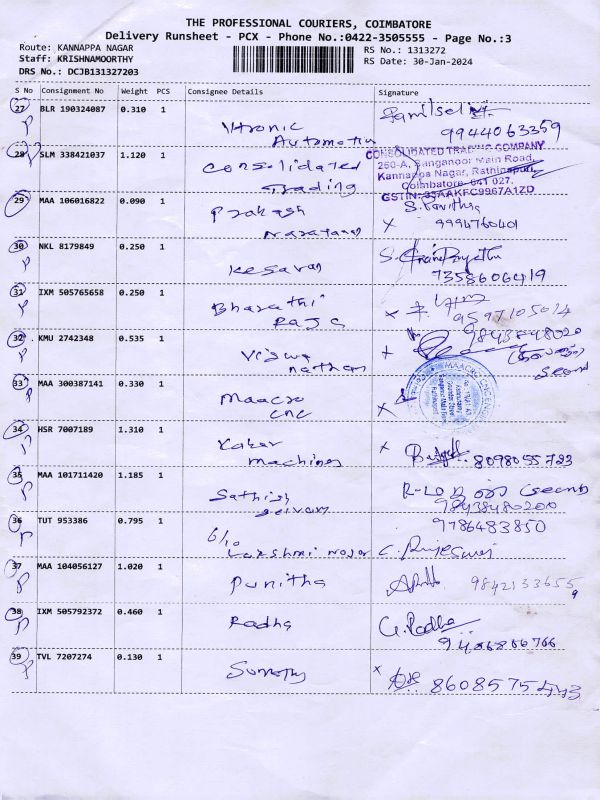 THE PROFESSIONAL COURIERS, COIMBATORE
Delivery Runsheet - PCX - Phone No.:0422-3505555 - Page No.:3
Route: KANNAPPA NAGAR RS No.: 1313272
Staff: KRISHNAMOORTHY RS Date: 30-Jan-2024
DRS No.: DCJB131327203
S No Consignment No Weight PCS Consignee Details Signature
27 BLR 190324087 0.310 1
Vtronic
Automotiv 9944063359
28 SLM 338421037 1.120 1 CONSOLIDATED TRADING COMPANY
Consolidated 260-A, Sanganoor Main Road,
Trading Kannappa Nagar, Rathinapuri,
Coimbatore-641 027.
GSTIN: 33AAKFC9967A1ZD
29 MAA 106016822 0.090 1 S. Pavithra
Prakash X 9994760401
Narayanan
30 NKL 8179849 0.250 1
Kesavan 7358606419
31 IXM 505765658 0.250 1
Bharathi X
Raja 9597105014
32 KMU 2742348 0.535 1 9843848020
Viswa
nathan
33 MAA 300387141 0.330 1
Maacro
CNC X
34 HSR 7007189 1.310 1
Kaker X 8098055723
machines
35 MAA 101711420 1.185 1
Sathish
selvam
36 TUT 953386 0.795 1 9786483850
Lakshmi nagar
37 MAA 104056127 1.020 1
Punitha 9842133655
38 IXM 505792372 0.460 1
Radha G. Radha
39 TVL 7207274 0.130 1
X